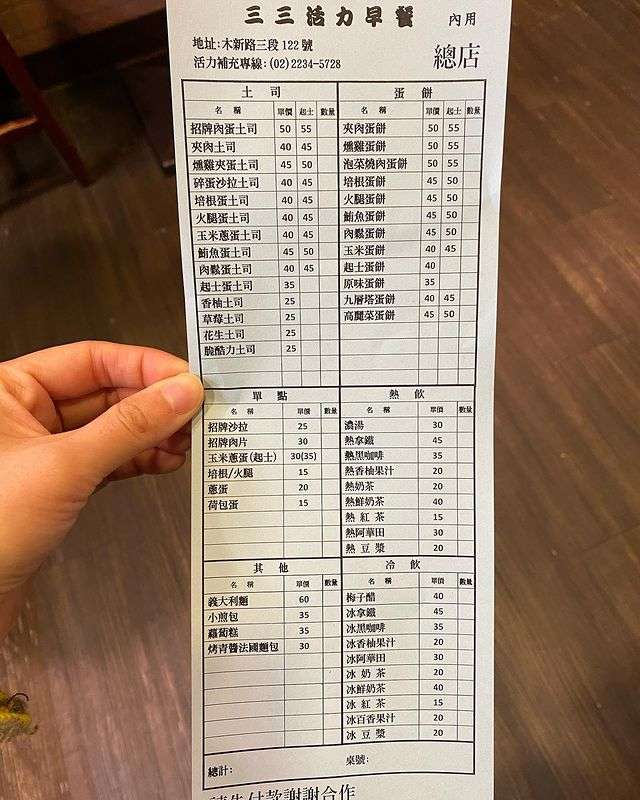 三三活力早餐 內用
地址:木新路三段122號
活力補充專線:(02)2234-5728
總店
土司
名稱 單價 起士 數量
招牌肉蛋土司 50 55
夾肉土司 40 45
燻雞夾蛋土司 45 50
碎蛋沙拉土司 40 45
培根蛋土司 40 45
火腿蛋土司 40 45
玉米蔥蛋土司 40 45
鮪魚蛋土司 45 50
肉鬆蛋土司 40 45
起士蛋土司 35
香柚土司 25
草莓土司 25
花生土司 25
脆酷力土司 25
蛋餅
名稱 單價 起士 數量
夾肉蛋餅 50 55
燻雞蛋餅 50 55
泡菜燒肉蛋餅 50 55
培根蛋餅 45 50
火腿蛋餅 45 50
鮪魚蛋餅 45 50
肉鬆蛋餅 45 50
玉米蛋餅 40 45
起士蛋餅 40
原味蛋餅 35
九層塔蛋餅 40 45
高麗菜蛋餅 45 50
單點
名稱 單價 數量
招牌沙拉 25
招牌肉片 30
玉米蔥蛋(起士) 30(35)
培根/火腿 15
蔥蛋 20
荷包蛋 15
熱飲
名稱 單價 數量
濃湯 30
熱拿鐵 45
熱黑咖啡 35
熱香柚果汁 20
熱奶茶 20
熱鮮奶茶 40
熱紅茶 15
熱阿華田 30
熱豆漿 20
其他
名稱 單價 數量
義大利麵 60
小煎包 35
蘿蔔糕 35
烤青醬法國麵包 30
冷飲
名稱 單價 數量
梅子醋 40
冰拿鐵 45
冰黑咖啡 35
冰香柚果汁 20
冰阿華田 30
冰奶茶 20
冰鮮奶茶 40
冰紅茶 15
冰百香果汁 20
冰豆漿 20
總計: 桌號:
請先付款謝謝合作